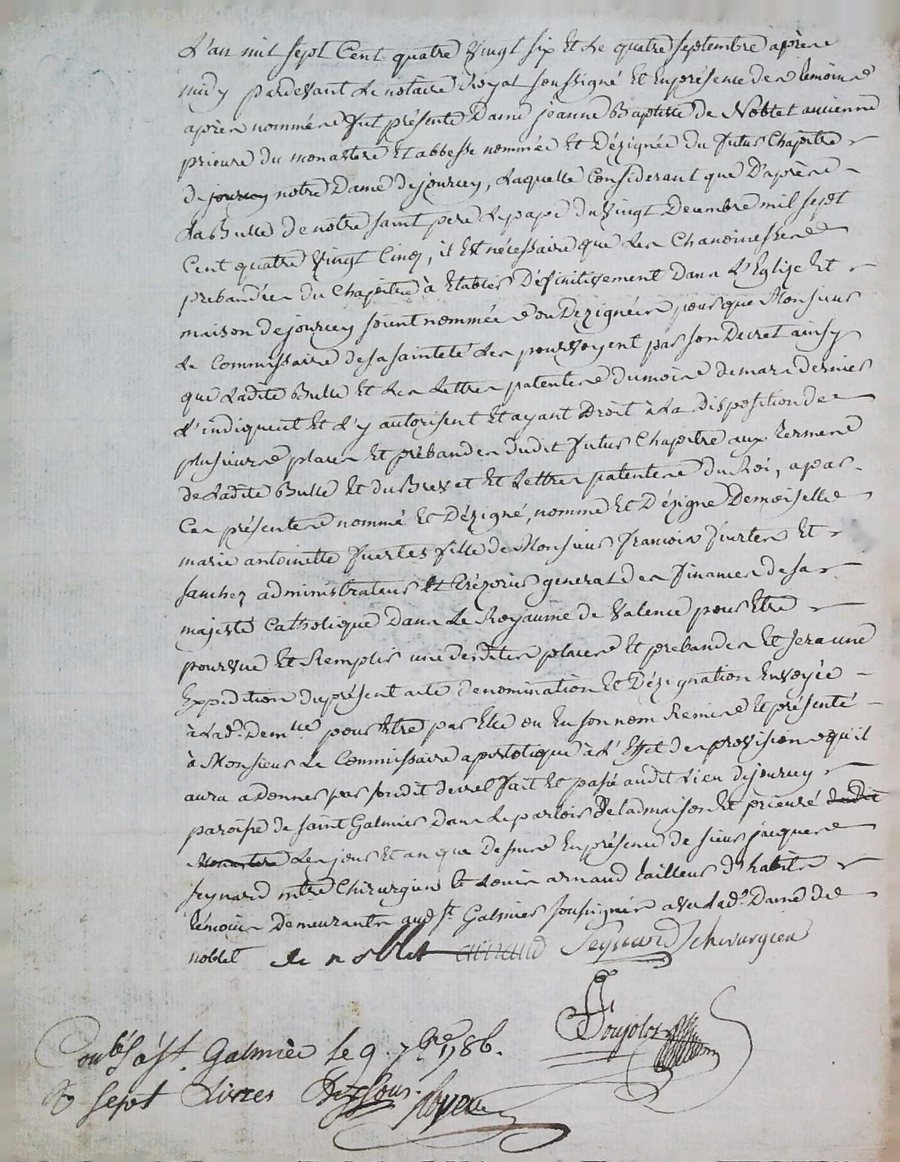 L'an mil sept Cent quatre Vingt six Et Le quatre septembre après
midy pardevant Le notaire Royal soussigné Et En présence des témoins
après nommés fut présente Dame jeanne Baptiste de Noblet ancienne
prieure du monastere Et abbesse nommée Et Dézignée du futur Chapitre
de jourcey notre Dame de jourcey, Laquelle Considerant que D'après
La Bulle de notre saint pere Le pape du Vingt Decembre mil sept
Cent quatre Vingt Cinq, il Est nécessaire que Les Chanoinesses
prebandées du Chapitre à Etablir Définitivement Dans L'Eglise Et
maison de jourcey soient nommées ou Dézignées pour que Monsieur
Le Commissaire de sa sainteté Les pourvoyent par son Decret ainsy
que Ladite Bulle Et Les Lettres patentes du mois de mars dernier
L'indiquent Et L'y autorisent Et ayant Droit à La Disposition de
plusieurs places Et prébandes dudit futur Chapitre aux termes
de Ladite Bulle Et du Brevet Et Lettres patentes du Roi, a par
Ces présentes nommé Et Dézigné, nomme Et Dézigne Demoiselle
marie antoinette fuertes fille de Monsieur francois fuertes Et
sanchez administrateur Et trézorier general des finances de sa
majesté Catholique Dans Le Royaume de Valence pour Etre
pourvue Et Remplir une desdites places Et prebandes Et sera une
Expédition du présent acte de nomination Et Dézignation Envoyée
à Lad. Demlle pour Etre par Elle ou En son nom Remise Et présenté
à Monsieur Le Commissaire apostolique à L'Effet des provisions qu'il
aura a donner par sondit decret fait Et passé audit Lieu de jourcey
paroisse de saint Galmier Dans Le parloir de Lad maison Et prieuré dudit
Monastere Les jour Et an que dessus En présence de sieur jacques
seynard mtre Chirurgien Et Louis arnaud tailleur d'habits
témoins demeurants aud. St Galmier soussignés avec Lad. Dame de
noblet de noblet arnaud Seynard Chirurgien
Coujolot
Conlé à St. Galmier le 9 7bre 1786.
sept Livres dix sous.